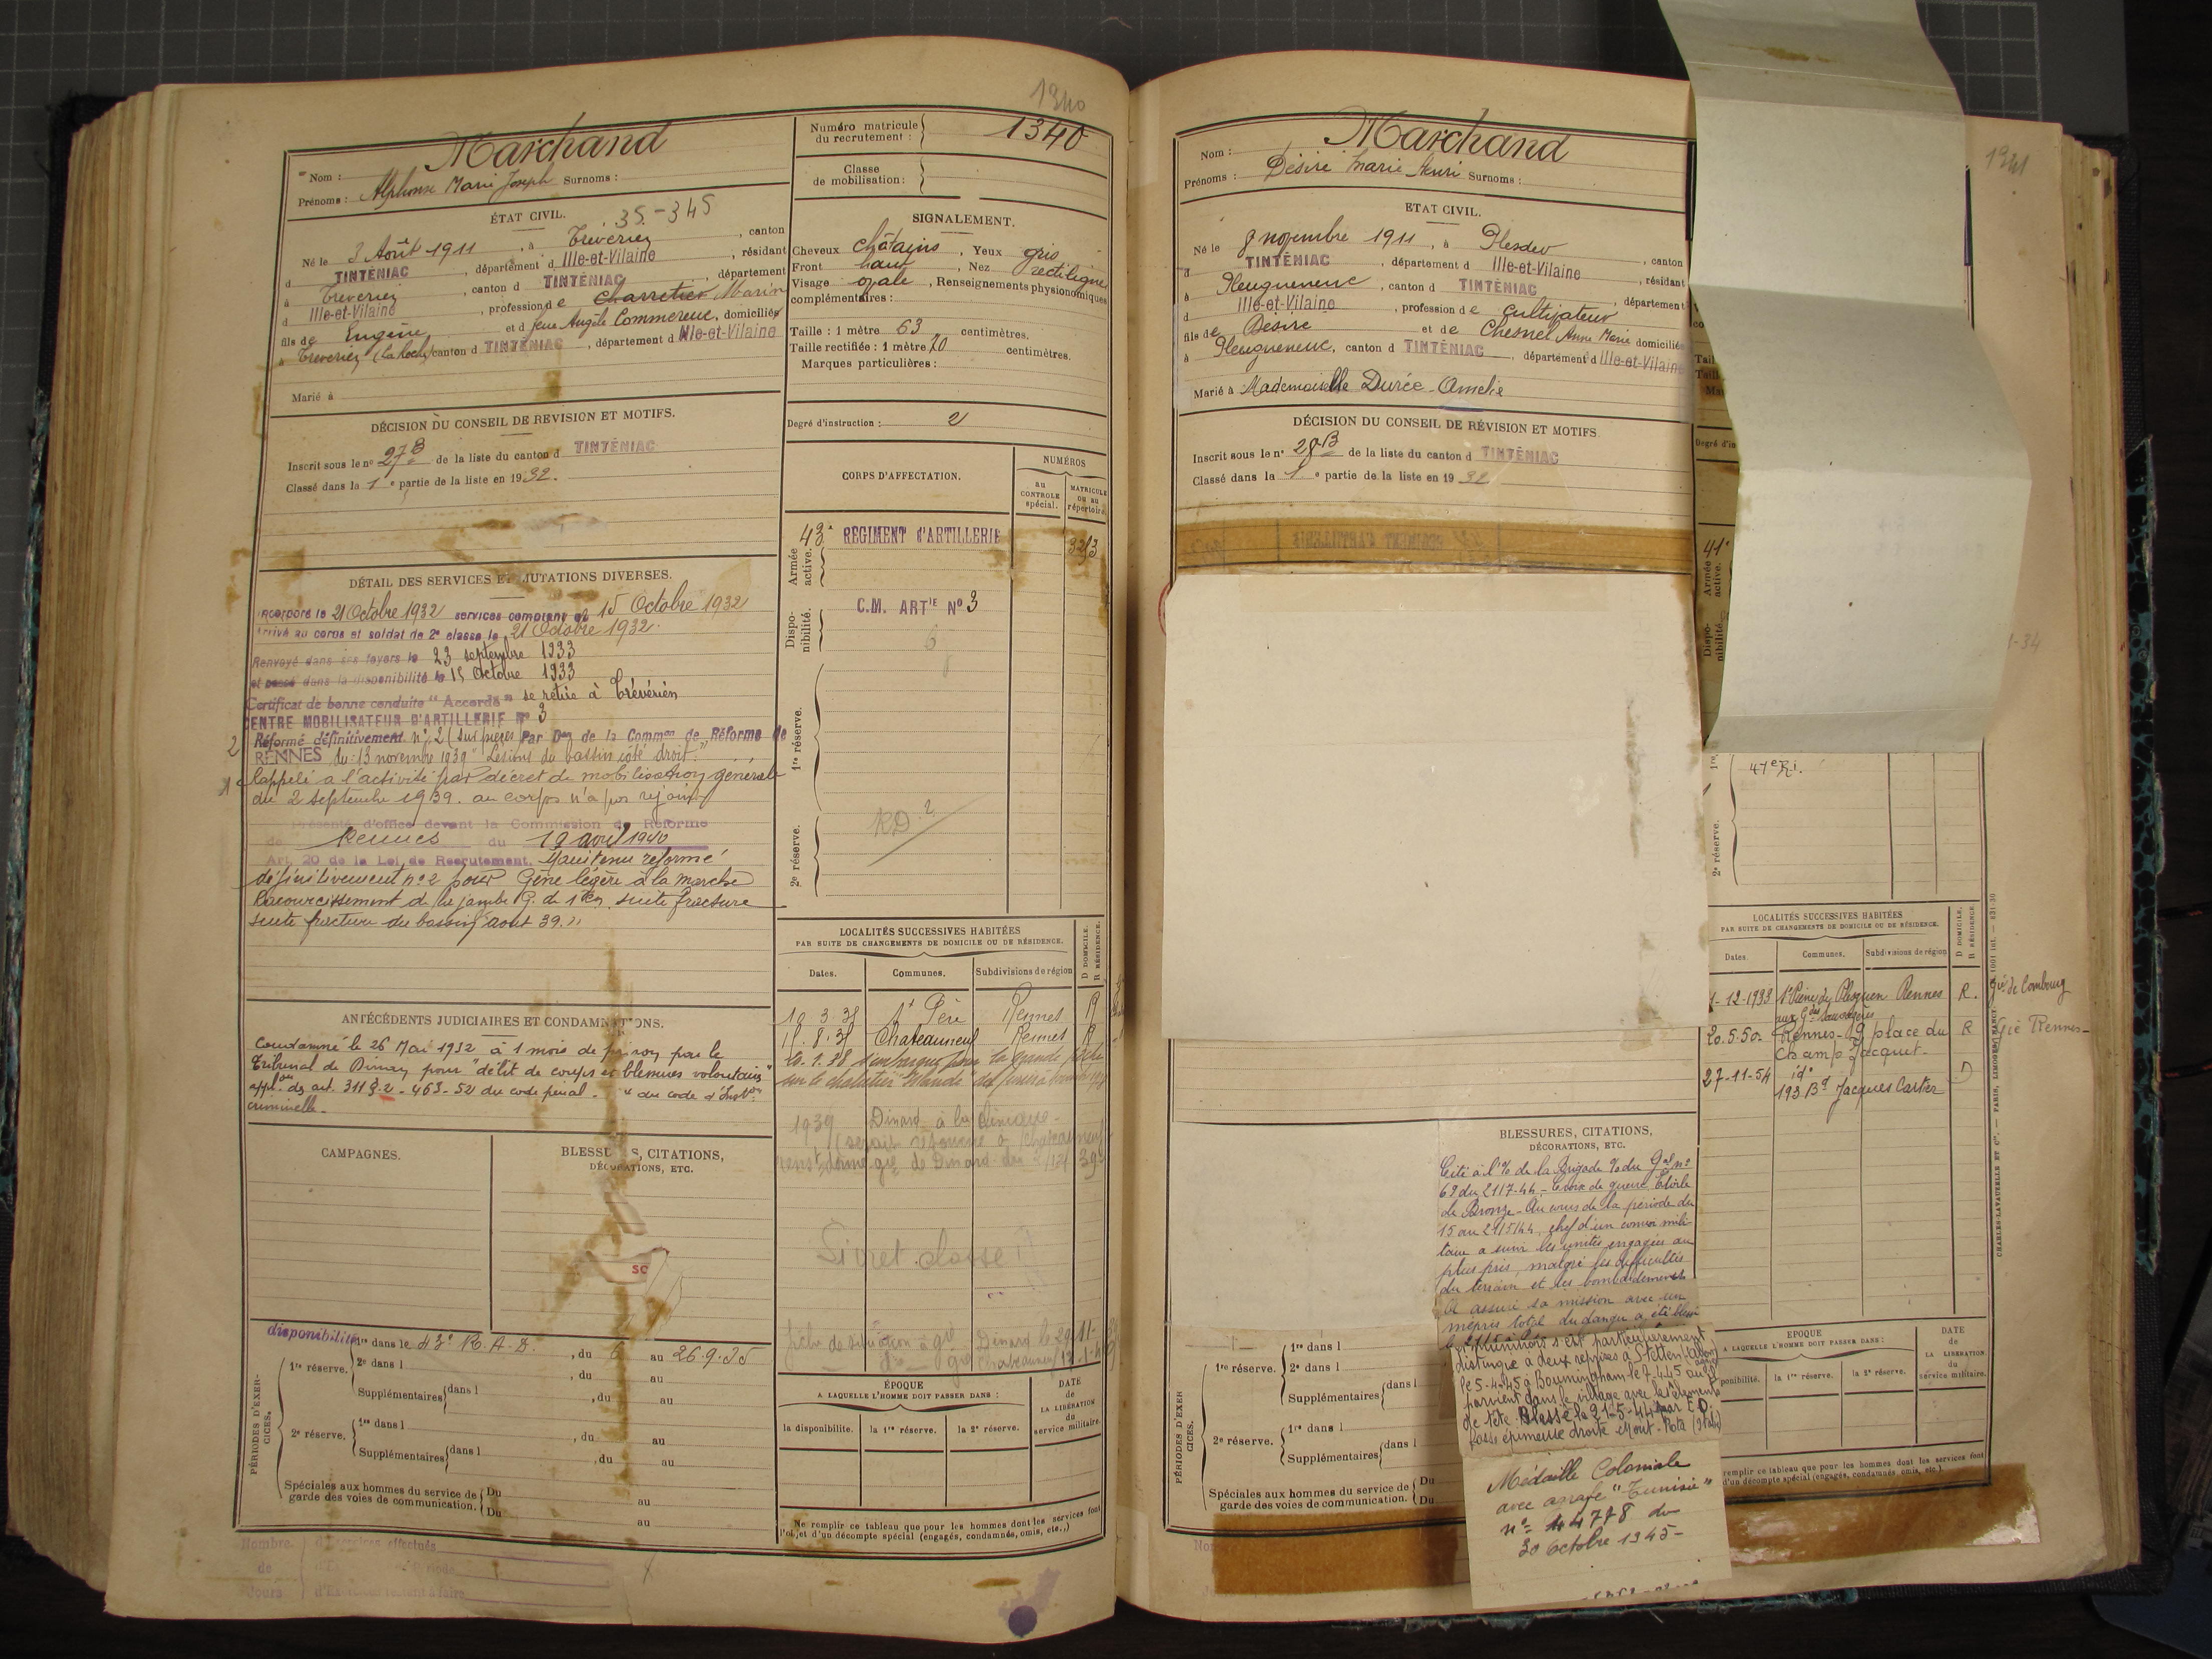 1340
Nom : Marchand
Prénoms : Alphonse Marie Joseph Surnoms :
Numéro matricule du recrutement : 1340
Classe de mobilisation :
ÉTAT CIVIL. 35-345
Né le 3 Août 1911, à Trévérien, canton
d TINTÉNIAC, département d Ille-et-Vilaine, résidant
à Trévérien, canton d TINTÉNIAC, département
d Ille-et-Vilaine, profession de charretier Marin
fils de Eugène et d feue Angèle Commereuc, domiciliés
à Trévérien (La Roche) canton d TINTÉNIAC, département d Ille-et-Vilaine
Marié à
SIGNALEMENT.
Cheveux châtains, Yeux gris
Front haut, Nez rectiligne
Visage ovale, Renseignements physionomiques
complémentaires :
Taille : 1 mètre 63 centimètres.
Taille rectifiée : 1 mètre 70 centimètres.
Marques particulières :
Degré d'instruction : 2
DÉCISION DU CONSEIL DE REVISION ET MOTIFS.
Inscrit sous le n° 27 B de la liste du canton d TINTÉNIAC
Classé dans la 1e partie de la liste en 1932.
CORPS D'AFFECTATION.
NUMÉROS
AU CONTROLE spécial.
MATRICULE OU AU répertoire.
Armée active.
43e RÉGIMENT d'ARTILLERIE
Dispo-nibilité.
C.M. ARTIE N° 3
6
1re réserve.
2e réserve.
RD. 2
DÉTAIL DES SERVICES ET MUTATIONS DIVERSES.
Incorporé le 21 Octobre 1932 services comptant du 15 Octobre 1932
Arrivé au corps et soldat de 2e classe le 21 Octobre 1932.
Renvoyé dans ses foyers le 23 septembre 1933
et passé dans la disponibilité le 15 Octobre 1933
Certificat de bonne conduite "Accordé" se retire à Trévérien
CENTRE MOBILISATEUR D'ARTILLERIE N° 3
2 Réformé définitivement n° 2 (sur pièces Par Don de la Common de Réforme de
RENNES du 13 novembre 1939 "Lésions du bassin côté droit."
1 Rappelé à l'activité par décret de mobilisation générale
du 2 septembre 1939. au corps n'a pas rejoint
Présenté d'office devant la Commission de Réforme
de Rennes du 19 avril 1940
Art. 20 de la Loi de Recrutement. Maintenu réformé
définitivement n° 2 pour Gêne légère à la marche
Raccourcissement de la jambe G. de 1 cm suite fracture
suite fracture du bassin août 39."
ANTÉCÉDENTS JUDICIAIRES ET CONDAMNATIONS.
Condamné le 26 Mai 1932 à 1 mois de prison par le
Tribunal de Dinan pour "délit de coups et blessures volontaires"
appl. des art. 311 § 2 - 463 - 52 du code pénal - " du code d'Inston
criminelle -
LOCALITÉS SUCCESSIVES HABITÉES
PAR SUITE DE CHANGEMENTS DE DOMICILE OU DE RÉSIDENCE.
D DOMICILE. R RÉSIDENCE.
Dates. Communes. Subdivisions de région
10.3.35 St Père Rennes R
15.8.35 Chateauneuf Rennes R
1939 Dinard à la clinique -
Livret classe
CAMPAGNES.
BLESSURES, CITATIONS,
DÉCORATIONS, ETC.
SC
PÉRIODES D'EXER-CICES.
disponibilité 1re dans le 43e R.A.D., du 6 au 26.9.35
1re réserve. 2e dans l, du au
Supplémentaires dans l, du au
2e réserve. 1re dans l, du au
Supplémentaires dans l, du au
Spéciales aux hommes du service de garde des voies de communication. Du au
Du au
ÉPOQUE
A LAQUELLE L'HOMME DOIT PASSER DANS :
la disponibilité. la 1re réserve. la 2e réserve.
DATE de LA LIBÉRATION du service militaire.
Ne remplir ce tableau que pour les hommes dont les services font
l'objet d'un décompte spécial (engagés, condamnés, omis, etc.,)
Nombre de Jours
d'Exercices effectués
d'Exercices restant à faire
1341
Nom : Marchand
Prénoms : Désiré Marie Henri Surnoms :
ETAT CIVIL.
Né le 8 novembre 1911, à Plesder, canton
d TINTÉNIAC, département d Ille-et-Vilaine, résidant
à Pleugueneuc, canton d TINTÉNIAC, département
d Ille-et-Vilaine, profession de cultivateur
fils de Désiré et de Chesnel Anne Marie domiciliés
à Pleugueneuc, canton d TINTÉNIAC, département d Ille-et-Vilaine
Marié à Mademoiselle Durée Amélie
DÉCISION DU CONSEIL DE RÉVISION ET MOTIFS
Inscrit sous le n° 28 B de la liste du canton d TINTÉNIAC
Classé dans la 1e partie de la liste en 1932
Degré d'in
Armée active. 41e
Dispo-nibilité.
1-34
1re
47e R.I.
2e réserve.
LOCALITÉS SUCCESSIVES HABITÉES
PAR SUITE DE CHANGEMENTS DE DOMICILE OU DE RÉSIDENCE.
D DOMICILE. R RÉSIDENCE.
Dates. Communes. Subdivisions de région
1-12-1933 St Pierre de Plesguen Rennes R. gie de Combourg
20.5.50 Rennes - 9 place du R gie Rennes -
Champ Jacquet -
27-11-54 id° D
193 Bd Jacques Cartier
CHARLES-LAVAUZELLE ET Cie. — PARIS, LIMOGES, NANCY
BLESSURES, CITATIONS,
DÉCORATIONS, ETC.
Cité à l'% de la Brigade % du Gal n°
69 du 21-7-44 - Croix de guerre Etoile
de Bronze - Au cours de la période du
15 au 21/5/44, chef d'un convoi mili
taire a suivi les unités engagées au
plus près, malgré les difficultés
du terrain et les bombardements
A assuré sa mission avec un
mépris total du danger a été blessé
s'est particulièrement
distingué à deux reprises à Stetten
le 5-4-45 à le 7-4-45 où il
parvient dans le village avec les éléments
de tête. Blessé le 21-5-44 par E.O.
fosse épineuse droite Mont-Rota (Italie)
Médaille Coloniale
avec agrafe "Tunisie"
n° 44778 du
30 octobre 1945 -
PÉRIODES D'EXER CICES.
1re réserve. 1re dans l
2e dans l
Supplémentaires dans l
2e réserve. 1re dans l
Supplémentaires dans l
Spéciales aux hommes du service de garde des voies de communication. Du
Du
EPOQUE
A LAQUELLE L'HOMME DOIT PASSER DANS :
ponibilité. la 1re réserve. la 2e réserve.
DATE de LA LIBÉRATION du service militaire.
remplir ce tableau que pour les hommes dont les services font
d'un décompte spécial (engagés, condamnés, omis, etc.)